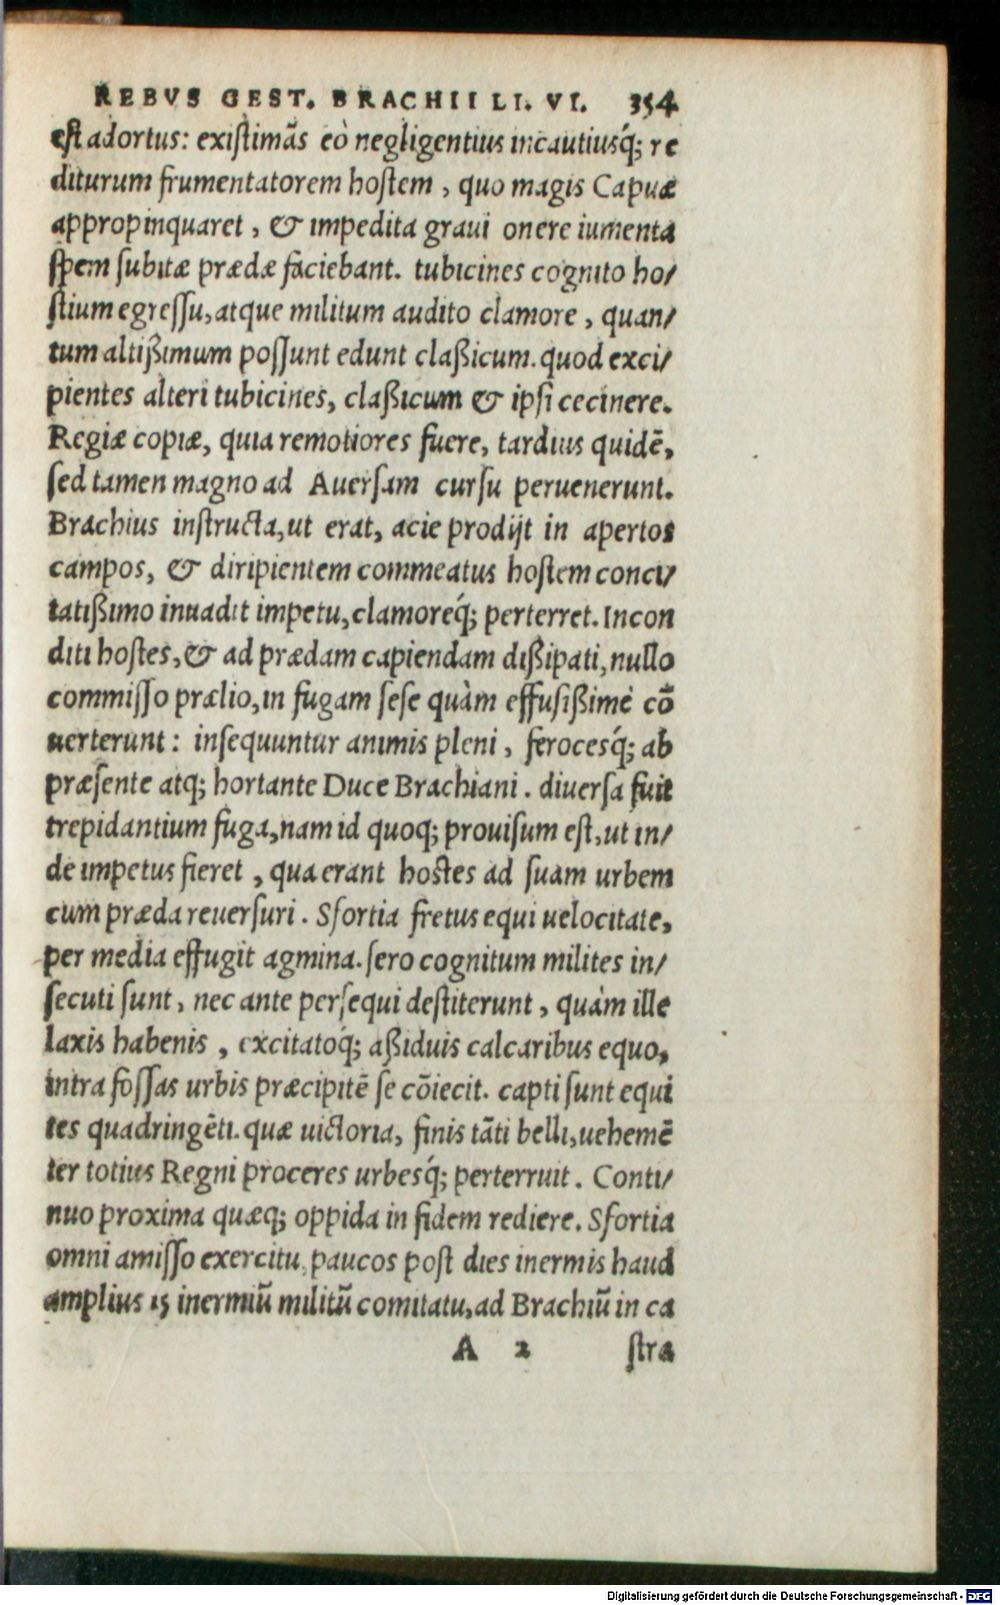 REBVS GEST. BRACHII LI. VI. 354
est adortus: existimãs eò negligentius incautiusq́; re
diturum frumentatorem hostem, quo magis Capuæ
appropinquaret, & impedita graui onere iumenta
spem subitæ prædæ faciebant. tubicines cognito ho/
stium egressu, atque militum audito clamore, quan/
tum altißimum possunt edunt claßicum. quod exci/
pientes alteri tubicines, claßicum & ipsi cecinere.
Regiæ copiæ, quia remotiores fuere, tardius quidẽ,
sed tamen magno ad Auersam cursu peruenerunt.
Brachius instructa, ut erat, acie prodijt in apertos
campos, & diripientem commeatus hostem conci/
tatißimo inuadit impetu, clamoreq́; perterret. Incon
diti hostes, & ad prædam capiendam dißipati, nullo
commisso prælio, in fugam sese quàm effusißimè cõ
uerterunt: insequuntur animis pleni, ferocesq́; ab
præsente atq; hortante Duce Brachiani. diuersa fuit
trepidantium fuga, nam id quoq; prouisum est, ut in/
de impetus fieret, qua erant hostes ad suam urbem
cum præda reuersuri. Sfortia fretus equi uelocitate,
per media effugit agmina. sero cognitum milites in/
secuti sunt, nec ante persequi destiterunt, quàm ille
laxis habenis, excitatoq́; aßiduis calcaribus equo,
intra fossas urbis præcipitẽ se cõiecit. capti sunt equi
tes quadringẽti. quæ uictoria, finis tãti belli, uehemẽ
ter totius Regni proceres urbesq́; perterruit. Conti/
nuo proxima quæq; oppida in fidem rediere. Sfortia
omni amisso exercitu, paucos post dies inermis haud
amplius 15 inermiũ militũ comitatu, ad Brachiũ in ca
A 2 stra
Digitalisierung gefördert durch die Deutsche Forschungsgemeinschaft - DFG